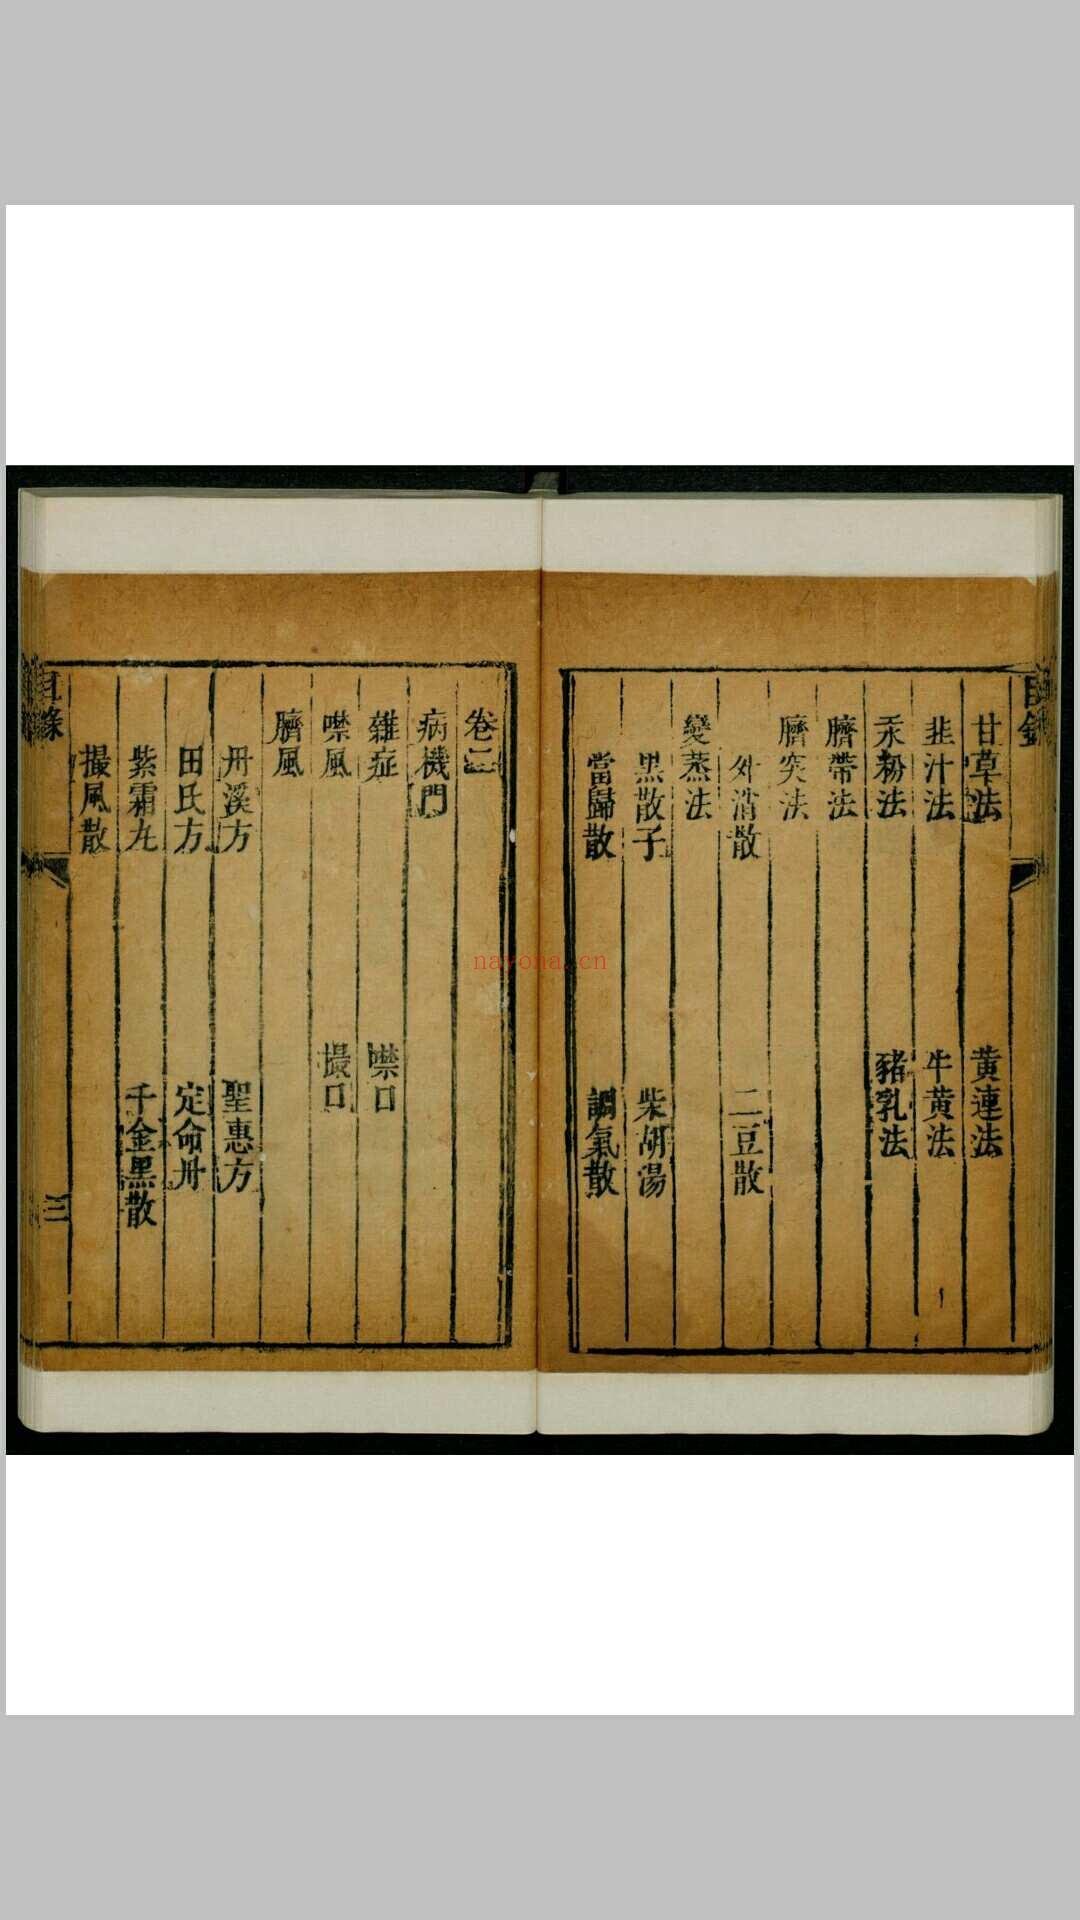 目錄
甘草法 黄連法
韭汁法 牛黄法
汞粉法 豬乳法
臍帶法
臍突法
外消散 二豆散
變蒸法
黑散子 柴胡湯
當歸散 調氣散
卷二
病機門
雜症 噤口
噤風 撮口
臍風
丹溪方 聖惠方
田氏方 定命丹
紫霜丸 千金黑散
撮風散
目錄
三
nayona.cn